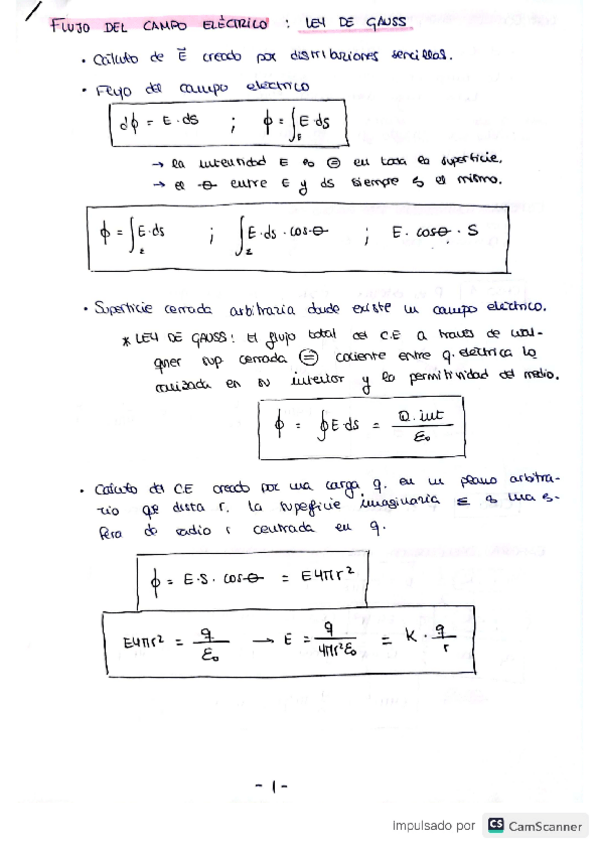 FLUJO DEL CAMPO ELÉCTRICO : LEY DE GAUSS
• Cálculo de E⃗ creado por distribuciones sencillas.
• Flujo del campo eléctrico
dϕ = E · ds ; ϕ = ∫Σ E · ds
→ la intensidad E es ⊜ en toda la superficie.
→ el θ entre E y ds siempre es el mismo.
ϕ = ∫Σ E · ds ; ∫Σ E · ds · cos θ ; E · cosθ · S
• Superficie cerrada arbitraria donde existe un campo eléctrico.
* LEY DE GAUSS: El flujo total del C.E a través de cual-
quier sup cerrada ⊜ cociente entre q. eléctrica lo
calizada en su interior y la permitividad del medio.
ϕ = ∮E · ds = Q.int / ε₀
• Cálculo del C.E creado por una carga q. en un plano arbitra-
rio que dista r. La superficie imaginaria Σ es una es-
fera de radio r centrada en q.
ϕ = E · S · cos θ = E4πr²
E4πr² = q / ε₀ → E = q / 4πr²ε₀ = K · q / r
- 1 -
Impulsado por CS CamScanner